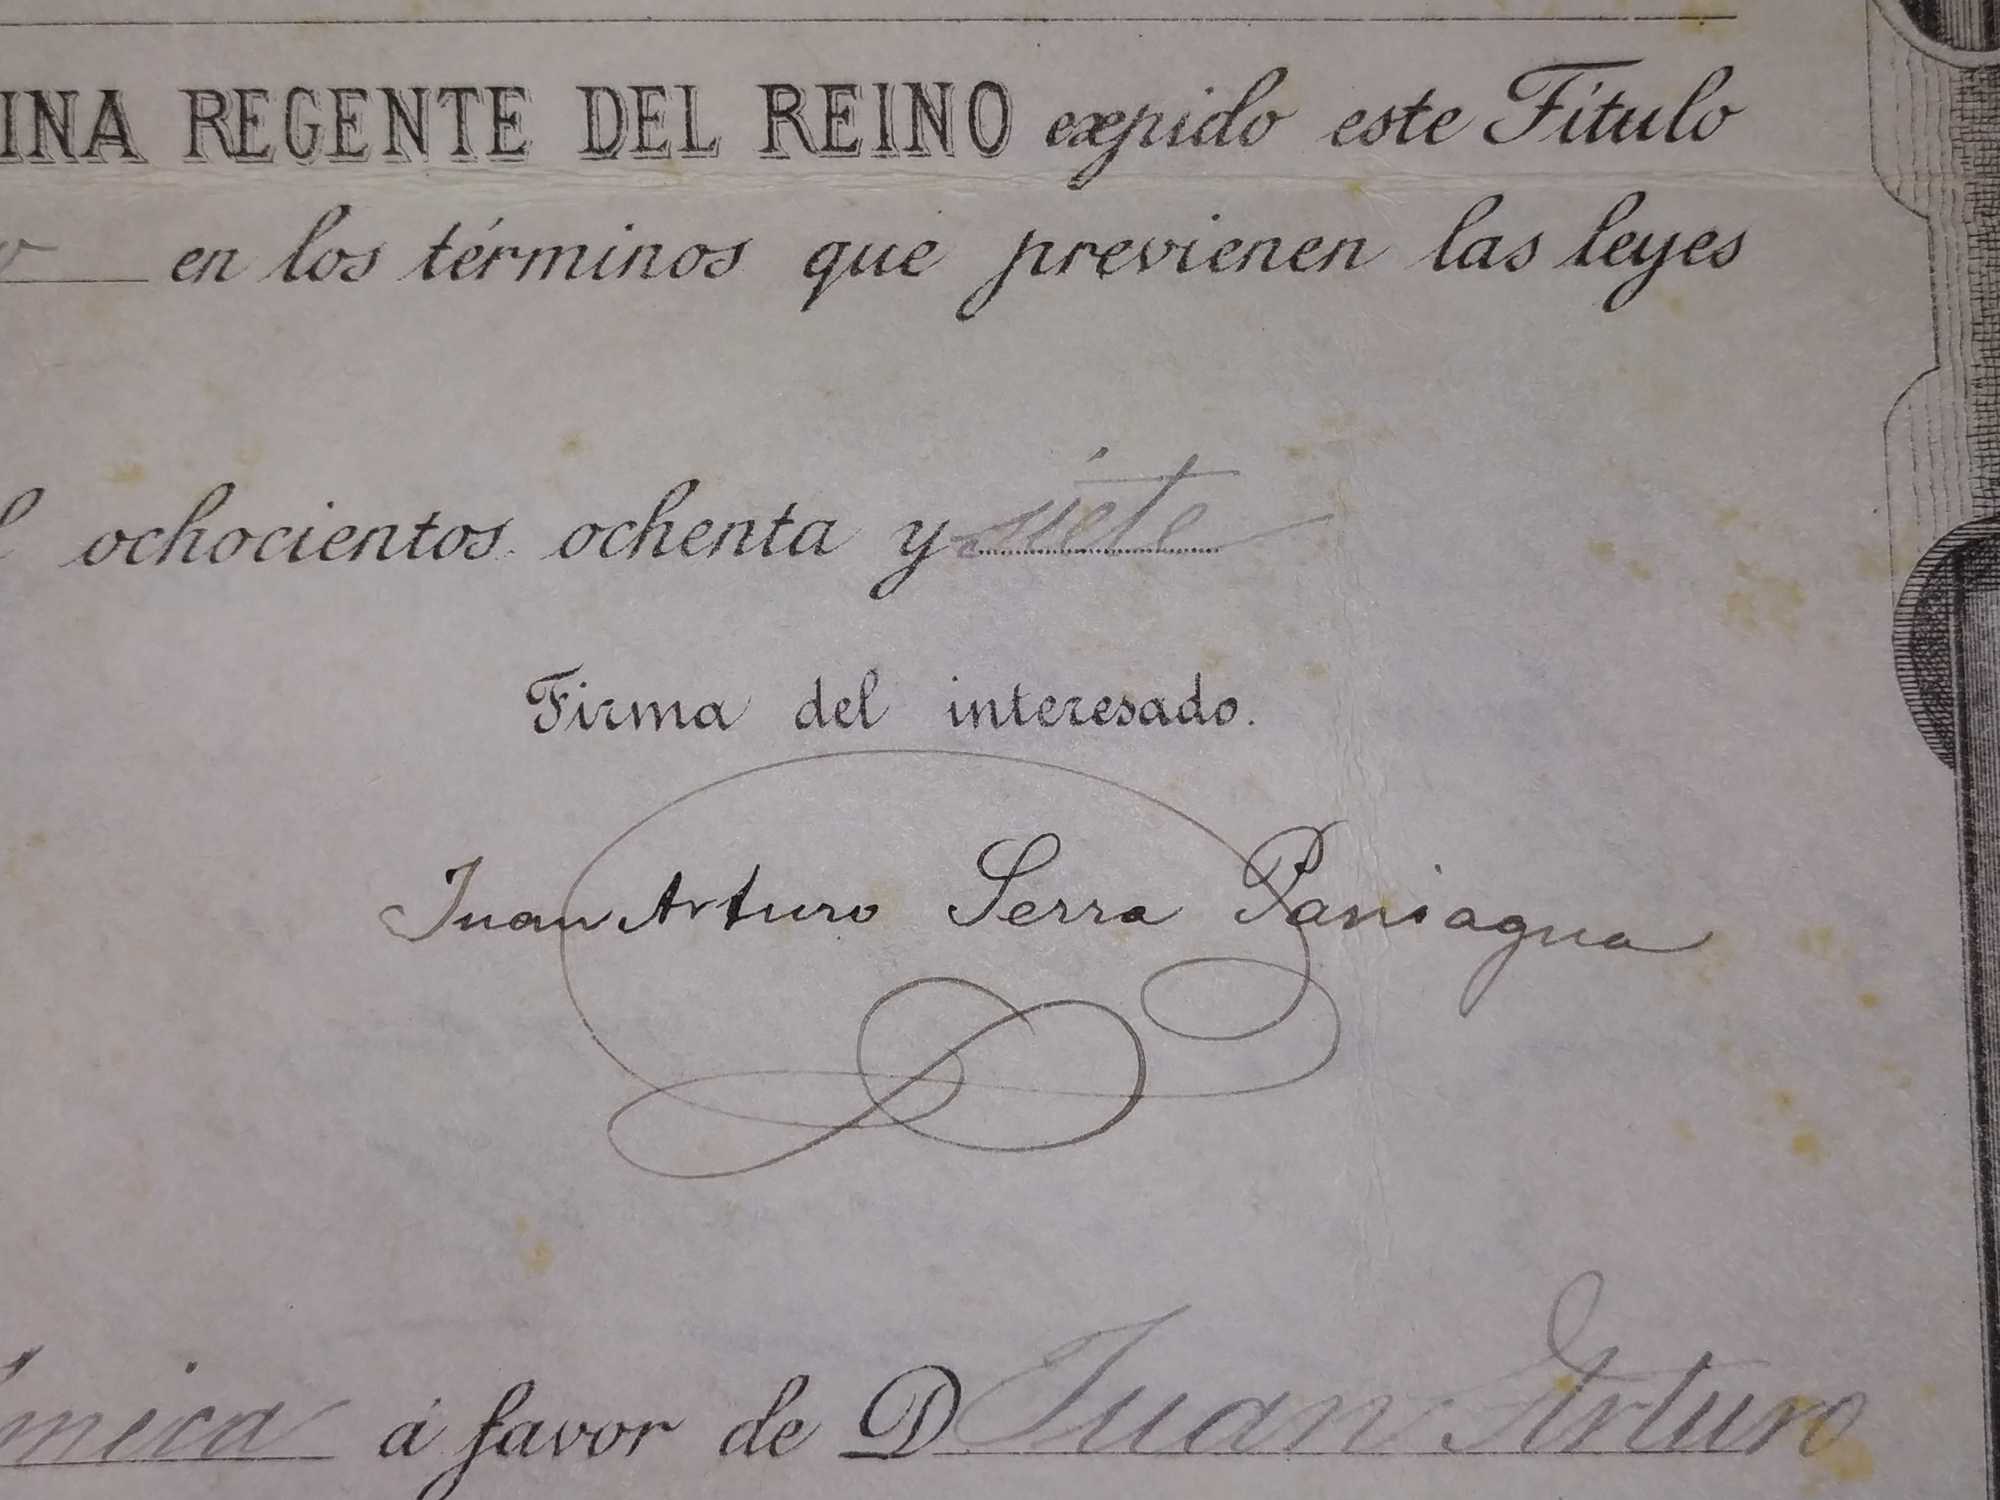 INA REGENTE DEL REINO expido este Título
en los términos que previenen las leyes
ochocientos ochenta y siete
Firma del interesado.
Juan Arturo Serra Paniagua
á favor de D Juan Arturo